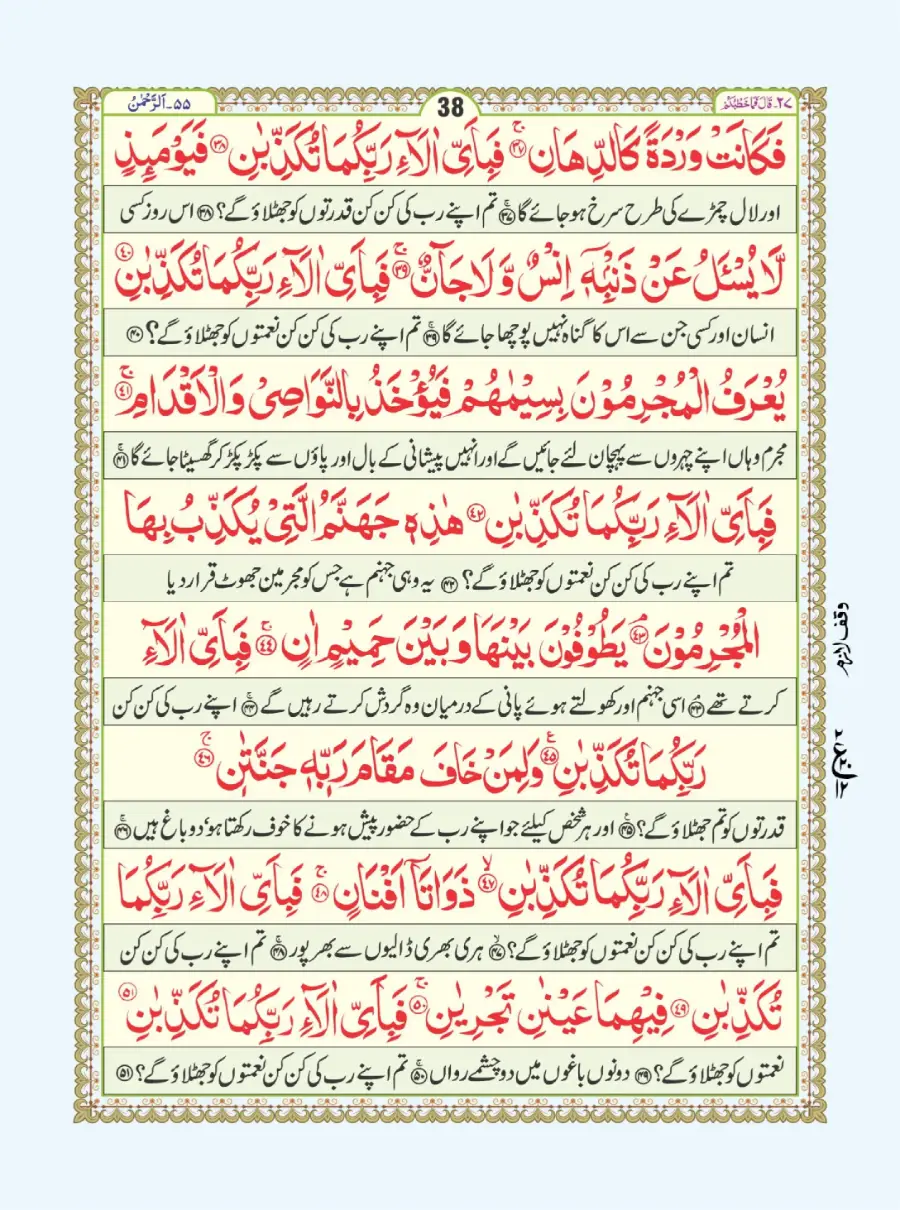 ۲۷-قَالَ فَمَا خَطْبُكُمْ
38
۵۵-اَلرَّحْمٰنُ
فَكَانَتْ وَرْدَةً كَالدِّهَانِۚ۳۷ فَبِاَیِّ اٰلَآءِ رَبِّكُمَا تُكَذِّبٰنِ۳۸ فَیَوْمَىِٕذٍ
اور لال چمڑے کی طرح سرخ ہوجائے گا۳۷ تم اپنے رب کی کن کن قدرتوں کو جھٹلاؤ گے؟۳۸ اس روز کسی
لَّا یُسْـَٔلُ عَنْ ذَنْۢبِهٖۤ اِنْسٌ وَّ لَا جَآنٌّۚ۳۹ فَبِاَیِّ اٰلَآءِ رَبِّكُمَا تُكَذِّبٰنِ۴۰
انسان اور کسی جن سے اس کا گناہ نہیں پوچھا جائے گا۳۹ تم اپنے رب کی کن کن نعمتوں کو جھٹلاؤ گے؟۴۰
یُعْرَفُ الْمُجْرِمُوْنَ بِسِیْمٰهُمْ فَیُؤْخَذُ بِالنَّوَاصِیْ وَ الْاَقْدَامِۚ۴۱
مجرم وہاں اپنے چہروں سے پہچان لئے جائیں گے اور انہیں پیشانی کے بال اور پاؤں سے پکڑ پکڑ کر گھسیٹا جائے گا۴۱
فَبِاَیِّ اٰلَآءِ رَبِّكُمَا تُكَذِّبٰنِ۴۲ هٰذِهٖ جَهَنَّمُ الَّتِیْ یُكَذِّبُ بِهَا
تم اپنے رب کی کن کن نعمتوں کو جھٹلاؤ گے؟۴۲ یہ وہی جہنم ہے جس کو مجرمین جھوٹ قرار دیا
الْمُجْرِمُوْنَۘ۴۳ یَطُوْفُوْنَ بَیْنَهَا وَ بَیْنَ حَمِیْمٍ اٰنٍۚ۴۴ فَبِاَیِّ اٰلَآءِ
وقف لازم
کرتے تھے۴۳ اسی جہنم اور کھولتے ہوئے پانی کے درمیان وہ گردش کرتے رہیں گے۴۴ اپنے رب کی کن کن
رَبِّكُمَا تُكَذِّبٰنِ۴۵ وَ لِمَنْ خَافَ مَقَامَ رَبِّهٖ جَنَّتٰنِۚ۴۶
قدرتوں کو تم جھٹلاؤ گے؟۴۵ اور ہر شخص کیلئے جو اپنے رب کے حضور پیش ہونے کا خوف رکھتا ہو، دو باغ ہیں۴۶
فَبِاَیِّ اٰلَآءِ رَبِّكُمَا تُكَذِّبٰنِۙ۴۷ ذَوَاتَاۤ اَفْنَانٍۚ۴۸ فَبِاَیِّ اٰلَآءِ رَبِّكُمَا
تم اپنے رب کی کن کن نعمتوں کو جھٹلاؤ گے؟۴۷ ہری بھری ڈالیوں سے بھرپور۴۸ تم اپنے رب کی کن کن
تُكَذِّبٰنِ۴۹ فِیْهِمَا عَیْنٰنِ تَجْرِیٰنِۚ۵۰ فَبِاَیِّ اٰلَآءِ رَبِّكُمَا تُكَذِّبٰنِ۵۱
نعمتوں کو جھٹلاؤ گے؟۴۹ دونوں باغوں میں دو چشمے رواں۵۰ تم اپنے رب کی کن کن نعمتوں کو جھٹلاؤ گے؟۵۱